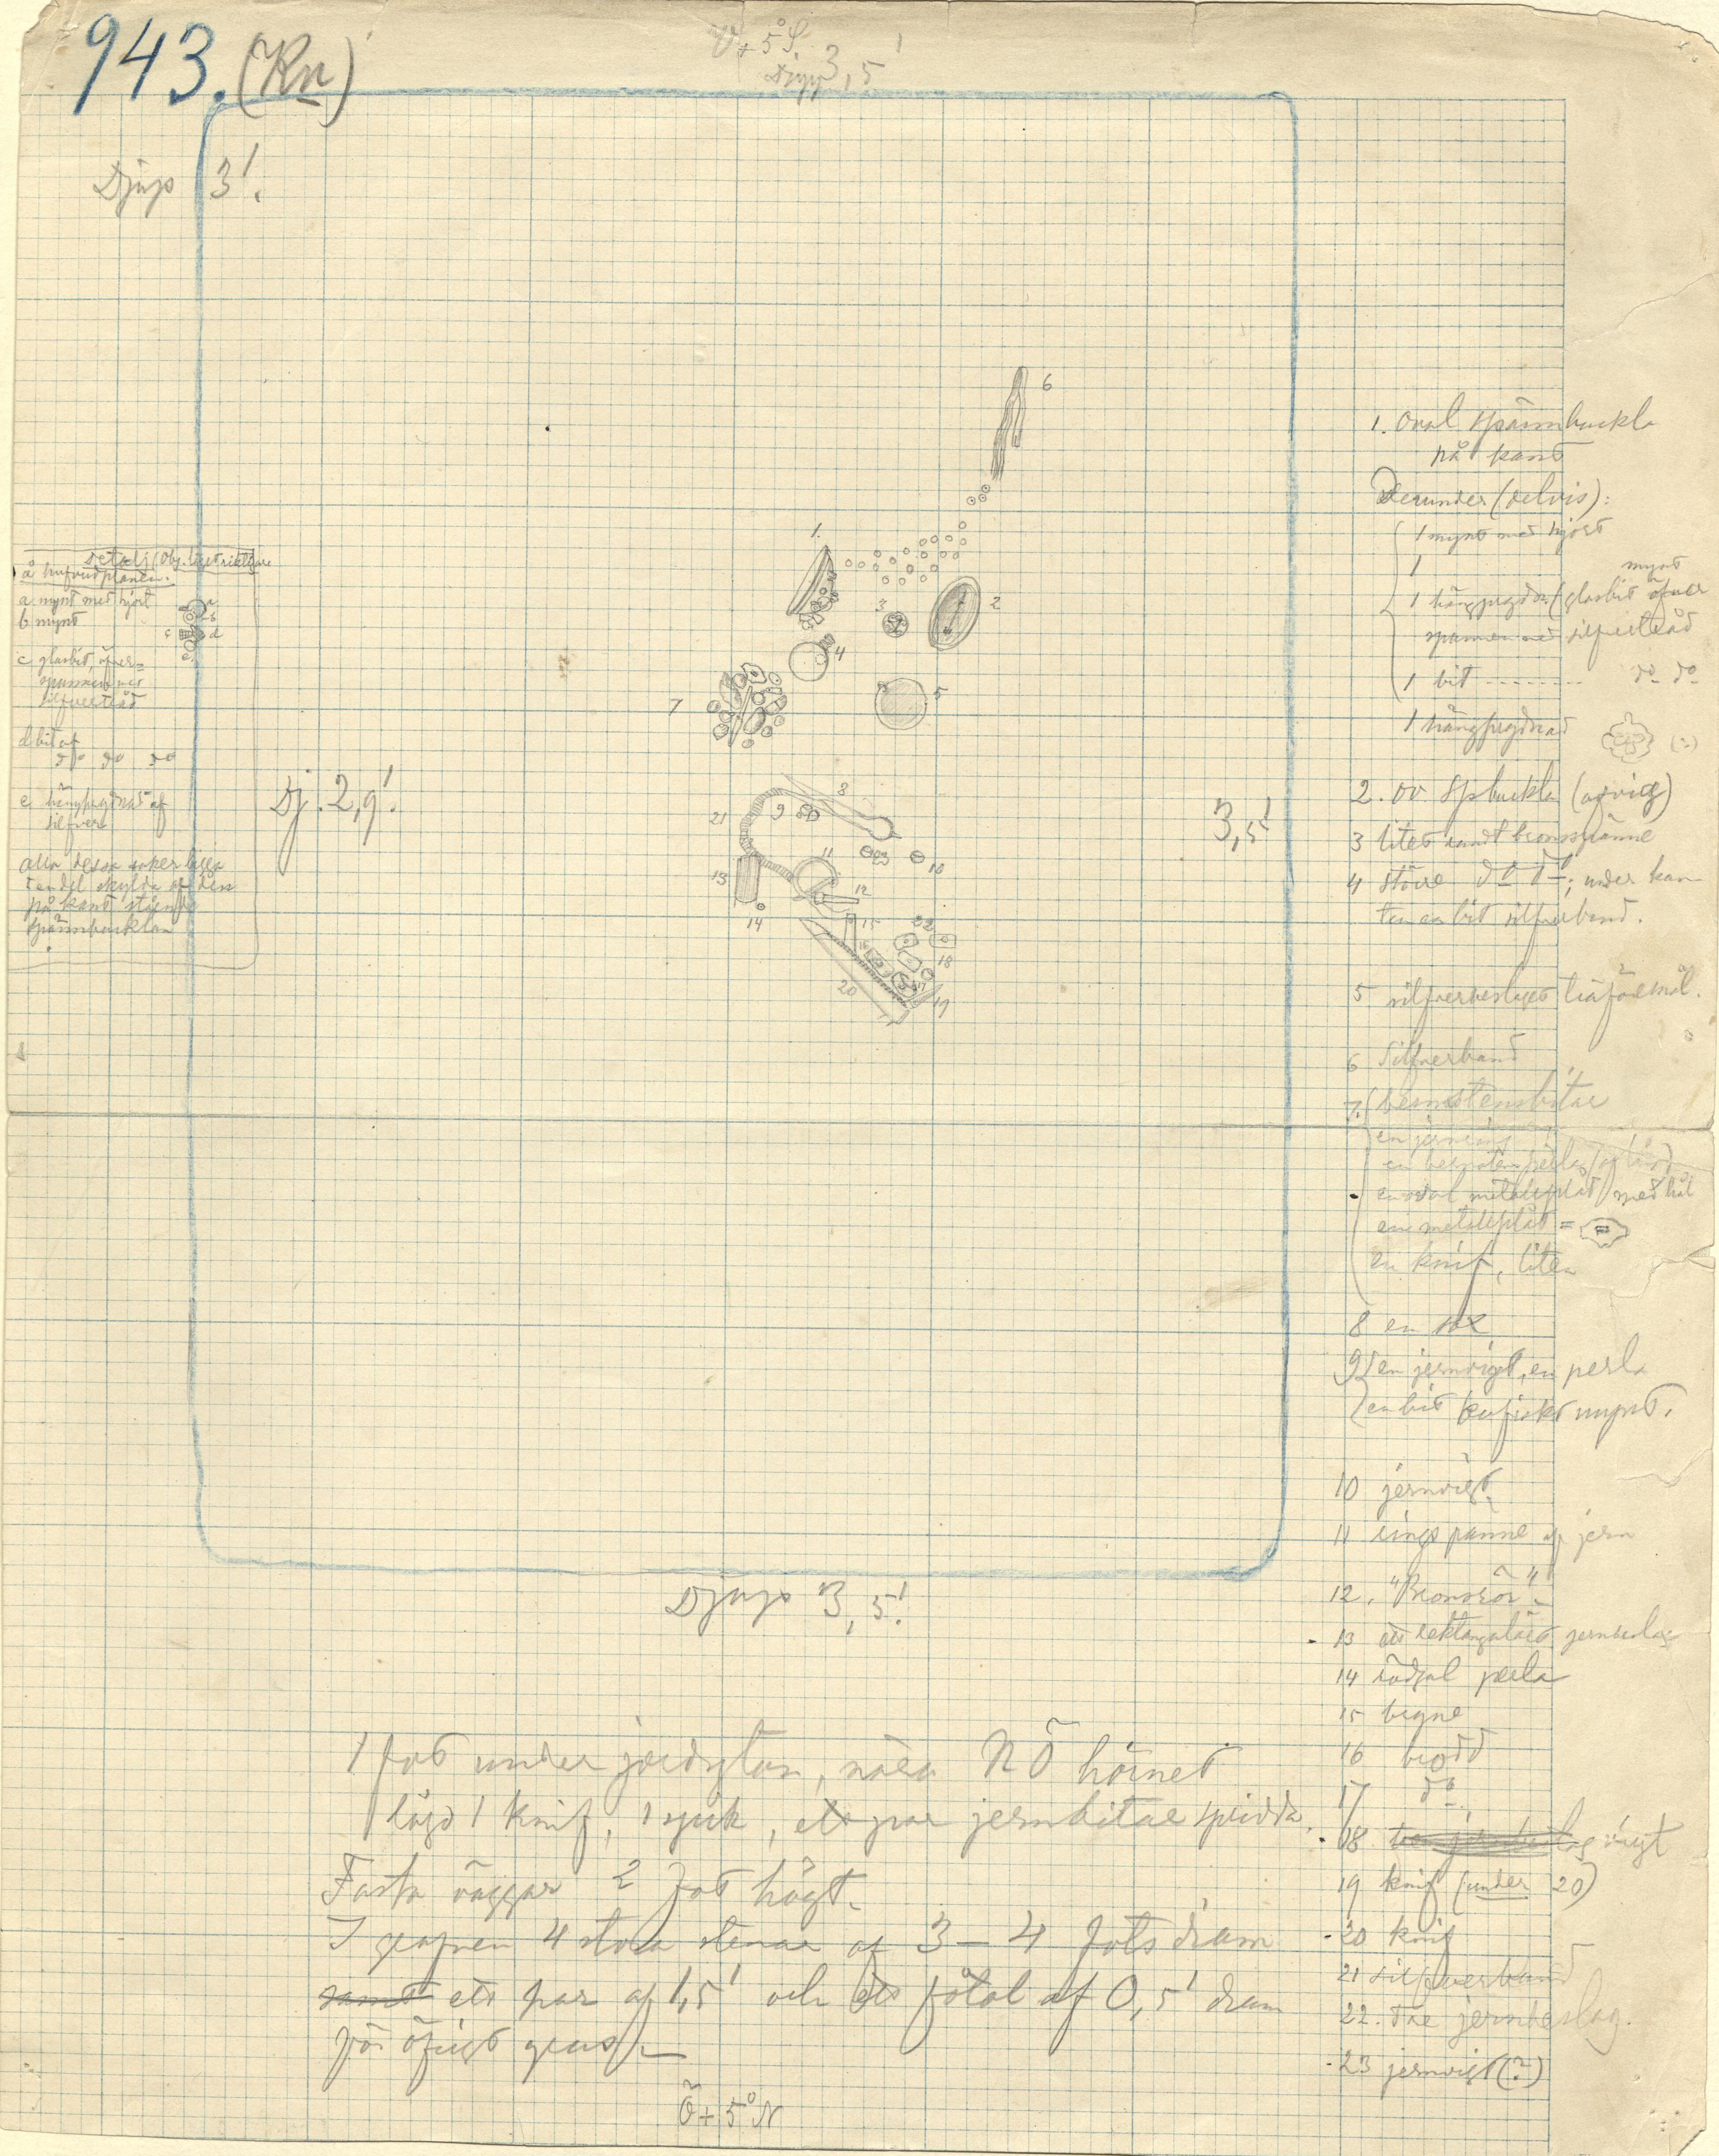 943. (Kn)
V + 5° S.
Djup 3,5'
Djup 3'.
Detalj (Obj. läge riktigare
å hufvudplanen.
a mynt med hjort
b mynt
c glasbit, öfver-
spunnen med
silfvertråd
d bit af
do do do
e hängprydnad af
silfver
alla dessa saker ligga
en del skylda af den
på kant stående
spännbucklan
a
b
c d
e
Dj. 2,9'.
3,5'
1.
2
3
4
5
6
7
8
9
10
11
12
13
14
15
16
17
18
19
20
21
22
23
1. Oval spännbuckla
på kant
Derunder (delvis):
1 mynt med hjort
1 mynt
1 hängprydn. (glasbit öfver
spunnen med silfvertråd
1 bit -------- do do
1 hängprydnad (?)
2. ov spbuckla (afvig)
3 litet rundt bronsspänne
4 större do do; under kan-
ten en bit silfverband.
5 silfverbeslaget träföremål.
6 Silfverband
7. bernstensbitar
en jernring
en bernstensperla
en oval metallplåt med hål
en metallplåt =
en knif, liten
8 en sax
9 en jernvigt, en perla
en bit kufiskt mynt.
10 jernvigt.
11 ringspänne af jern
12. "Bronsrör"
13 ett rektangulärt jernbeslag
14 rödgul perla
15 bryne
16 brodd
17 do
18 vigt
19 knif (under 20)
20 knif
21 silfverband
22. Tre jernbeslag.
23 jernvigt (?)
Djup 3,5'.
1 fot under jordytan, nära NÖ hörnet
låg 1 knif, 1 spik, ett par jernbitar spridda.
Fasta väggar 2 fot högt.
I grafven 4 stora stenar af 3–4 fots diam
samt ett par af 1,5' och ett fåtal af 0,5' diam
för öfrigt grus.
Ö + 5° N